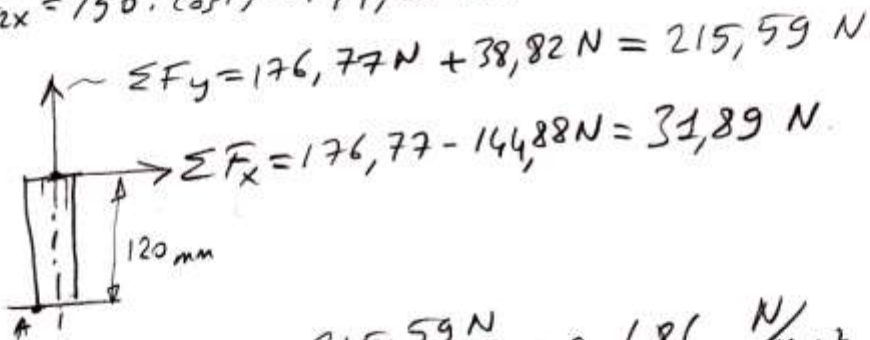 2x = 150. cos
ΣFy = 176,77N + 38,82 N = 215,59 N
ΣFx = 176,77 - 144,88N = 31,89 N.
120 mm
A
59 N